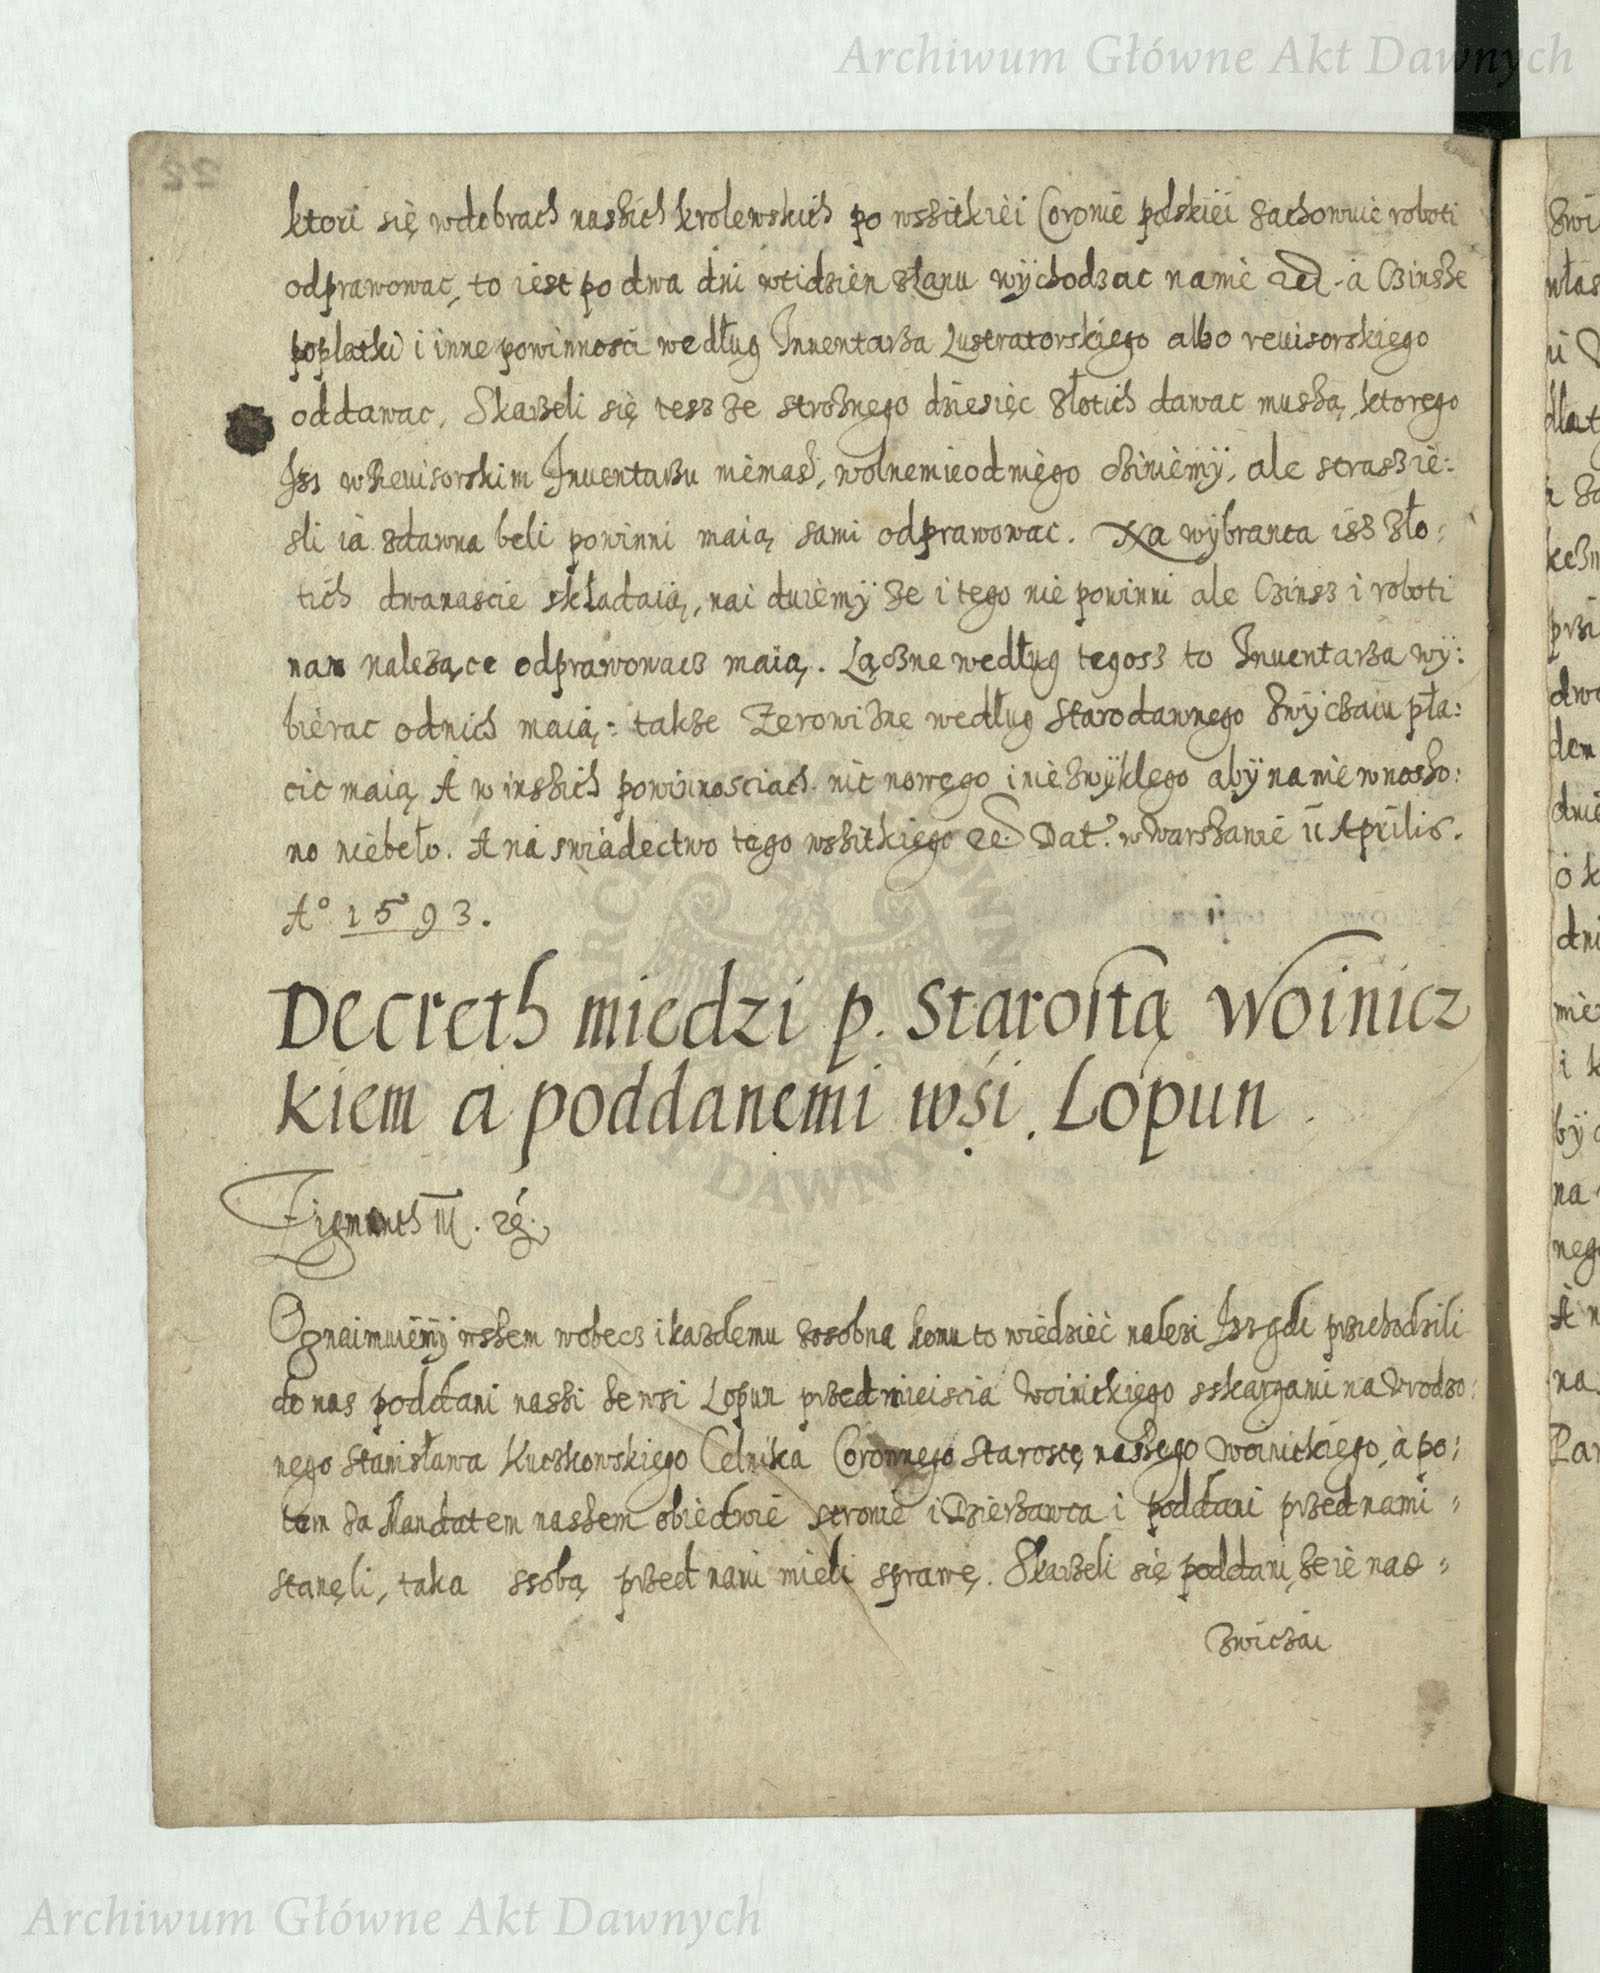 Archiwum Główne Akt Dawnych
22
ktori się wdobrach naszich krolewskich po wszitkiei Coronie polskiei zachowuie roboti
odprawowac, to iest po dwa dni wtidzien złanu wÿchodzac na nie etc. a Czinsze
poplatki i inne powinnosci według Inuentarza Lustratorskiego albo reuisorskiego
oddawac, Skarzeli się tesz ze stroznego dziesięc złotich dawac muszą, ktorego
Isz wReuisorskim Inuentarzu niemasz, wolne nie od niego cziniemÿ, ale strasz ie:
sli ia zdawna beli powinni maią sami odprawowac. Na wÿbranca isz zło:
tich dwanascie składaią, nai duiemÿ ze i tego nie powinni ale Czinsz i roboti
nan nalezące odprawowacz maią. Łączne według tegosz to Inuentarza wÿ:
bierac odnich maią: takze Zerowizne według starodawnego zwÿczaiu pła:
cic maią A w inszich powinnosciach nic nowego i nie zwÿklego abÿ na nie wnoszo:
no niebeło. A na swiadectwo tego wszitkiego etc. Dat. w Warszawie 11 Aprilis.
A° 1593.
Decreth miedzi p. Starostą Woinicz
kiem a poddanemi wsi. Lopun
Zigmunth III. etc.
Oznaimuiemÿ wszem wobecz i kazdemu zosobna komu to wiedziec nalezi Isz gdi przichodzili
do nas poddani naszi ze wsi Lopun przedmieiscia Woinickiego sskargami na Vrodzo:
nego Stanisława Kuczkowskiego Celnika Coronnego Starostę naszego Woinickiego, a po:
tem za Mandatem naszem obiedwie stronie i Dzierzawca i poddani przed nami
stanęli, taka ssobą przed nami mieli sprawę. Skarzeli się poddani, ze ie nad
zwiczai
Archiwum Główne Akt Dawnych